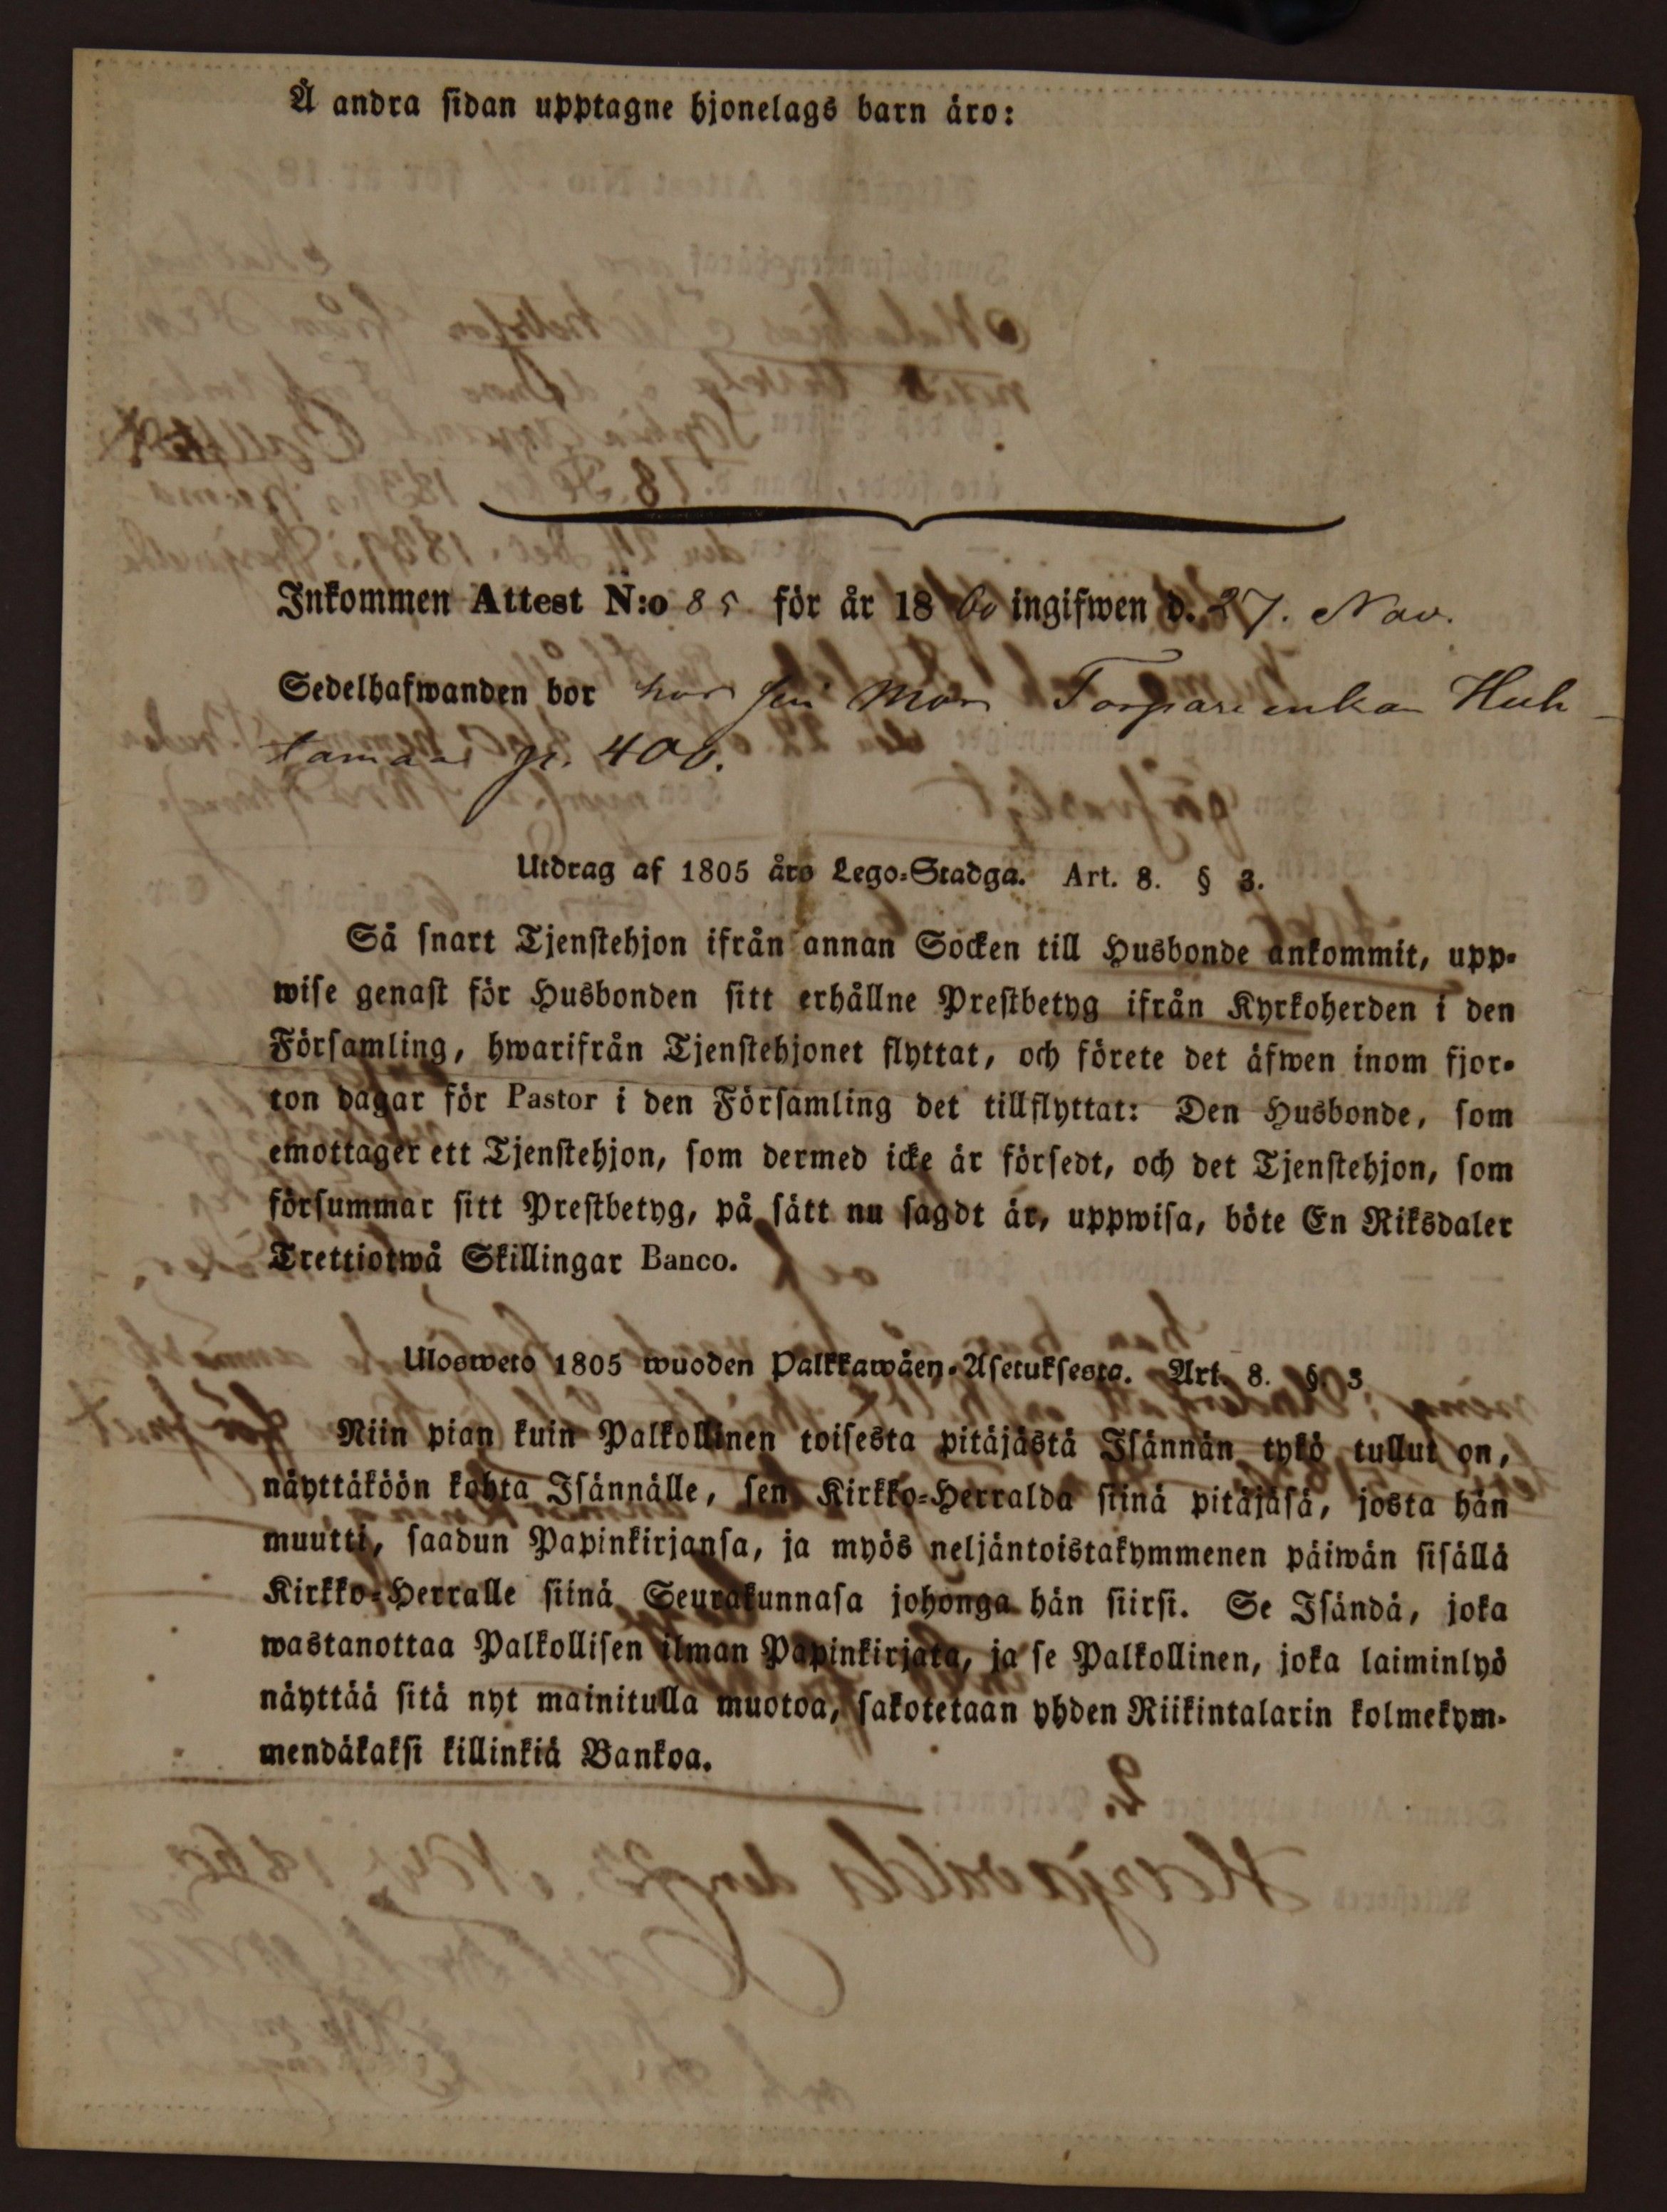 Å andra sidan upptagne hjonelags barn äro:
Inkommen Attest N:o 85 för år 1860 ingifwen d. 27. Nov.
Sedelhafwanden bor hos sin Mor Torpareenkan Huh-
tamaa gr. 400.
Utdrag af 1805 års Lego-Stadga. Art. 8. § 3.
Så snart Tjenstehjon ifrån annan Socken till Husbonde ankommit, upp-
wise genast för Husbonden sitt erhållne Prestbetyg ifrån Kyrkoherden i den
Församling, hwarifrån Tjenstehjonet flyttat, och förete det äfwen inom fjor-
ton dagar för Pastor i den Församling det tillflyttat: Den Husbonde, som
emottager ett Tjenstehjon, som dermed icke är försedt, och det Tjenstehjon, som
försummar sitt Prestbetyg, på sätt nu sagdt är, uppwisa, böte En Riksdaler
Trettiotwå Skillingar Banco.
Ulosweto 1805 wuoden Palkkawäen-Asetuksesta. Art. 8. §. 3
Niin pian kuin Palkollinen toisesta pitäjästä Isännän tykö tullut on,
näyttäköön kohta Isännälle, sen Kirkko-Herralda siinä pitäjäsä, josta hän
muutti, saadun Papinkirjansa, ja myös neljäntoistakymmenen päiwän sisällä
Kirkko-Herralle siinä Seurakunnasa johonga hän siirsi. Se Isändä, joka
wastanottaa Palkollisen ilman Papinkirjata, ja se Palkollinen, joka laiminlyö
näyttää sitä nyt mainitulla muotoa, sakotetaan yhden Riikintalarin kolmekym-
mendäkaksi killinkiä Bankoa.